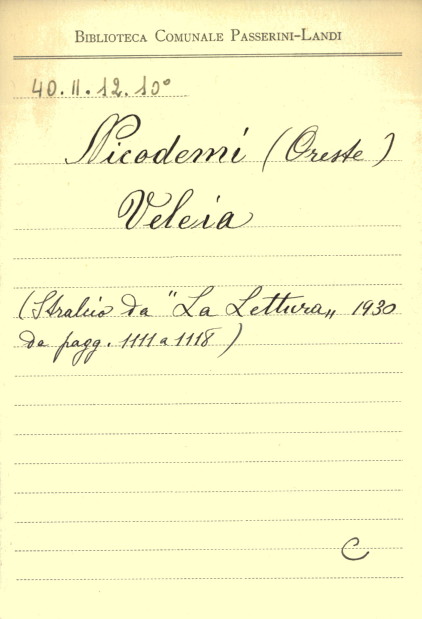 BIBLIOTECA COMUNALE PASSERINI-LANDI
40.II.12.10°
Nicodemi (Oreste)
Veleia
(Stralcio da "La Lettura„ 1930
da pagg. 1111 a 1118)
C